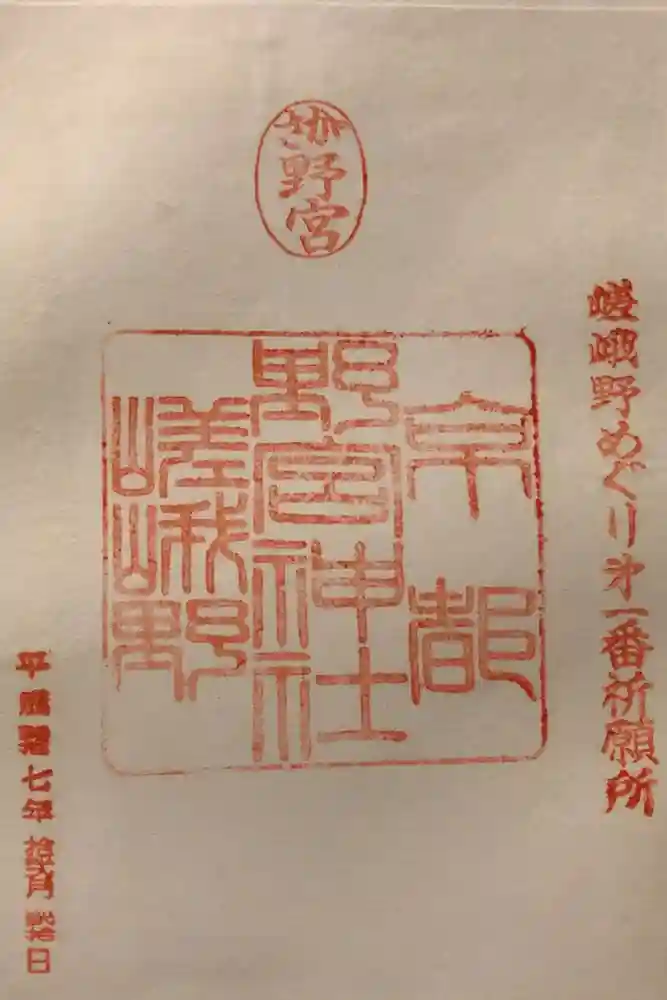 さが
野宮
嵯峨野めぐり第一番祈願所
京都
野宮神社
嵯峨野
平成弐拾七年拾弐月弐拾日